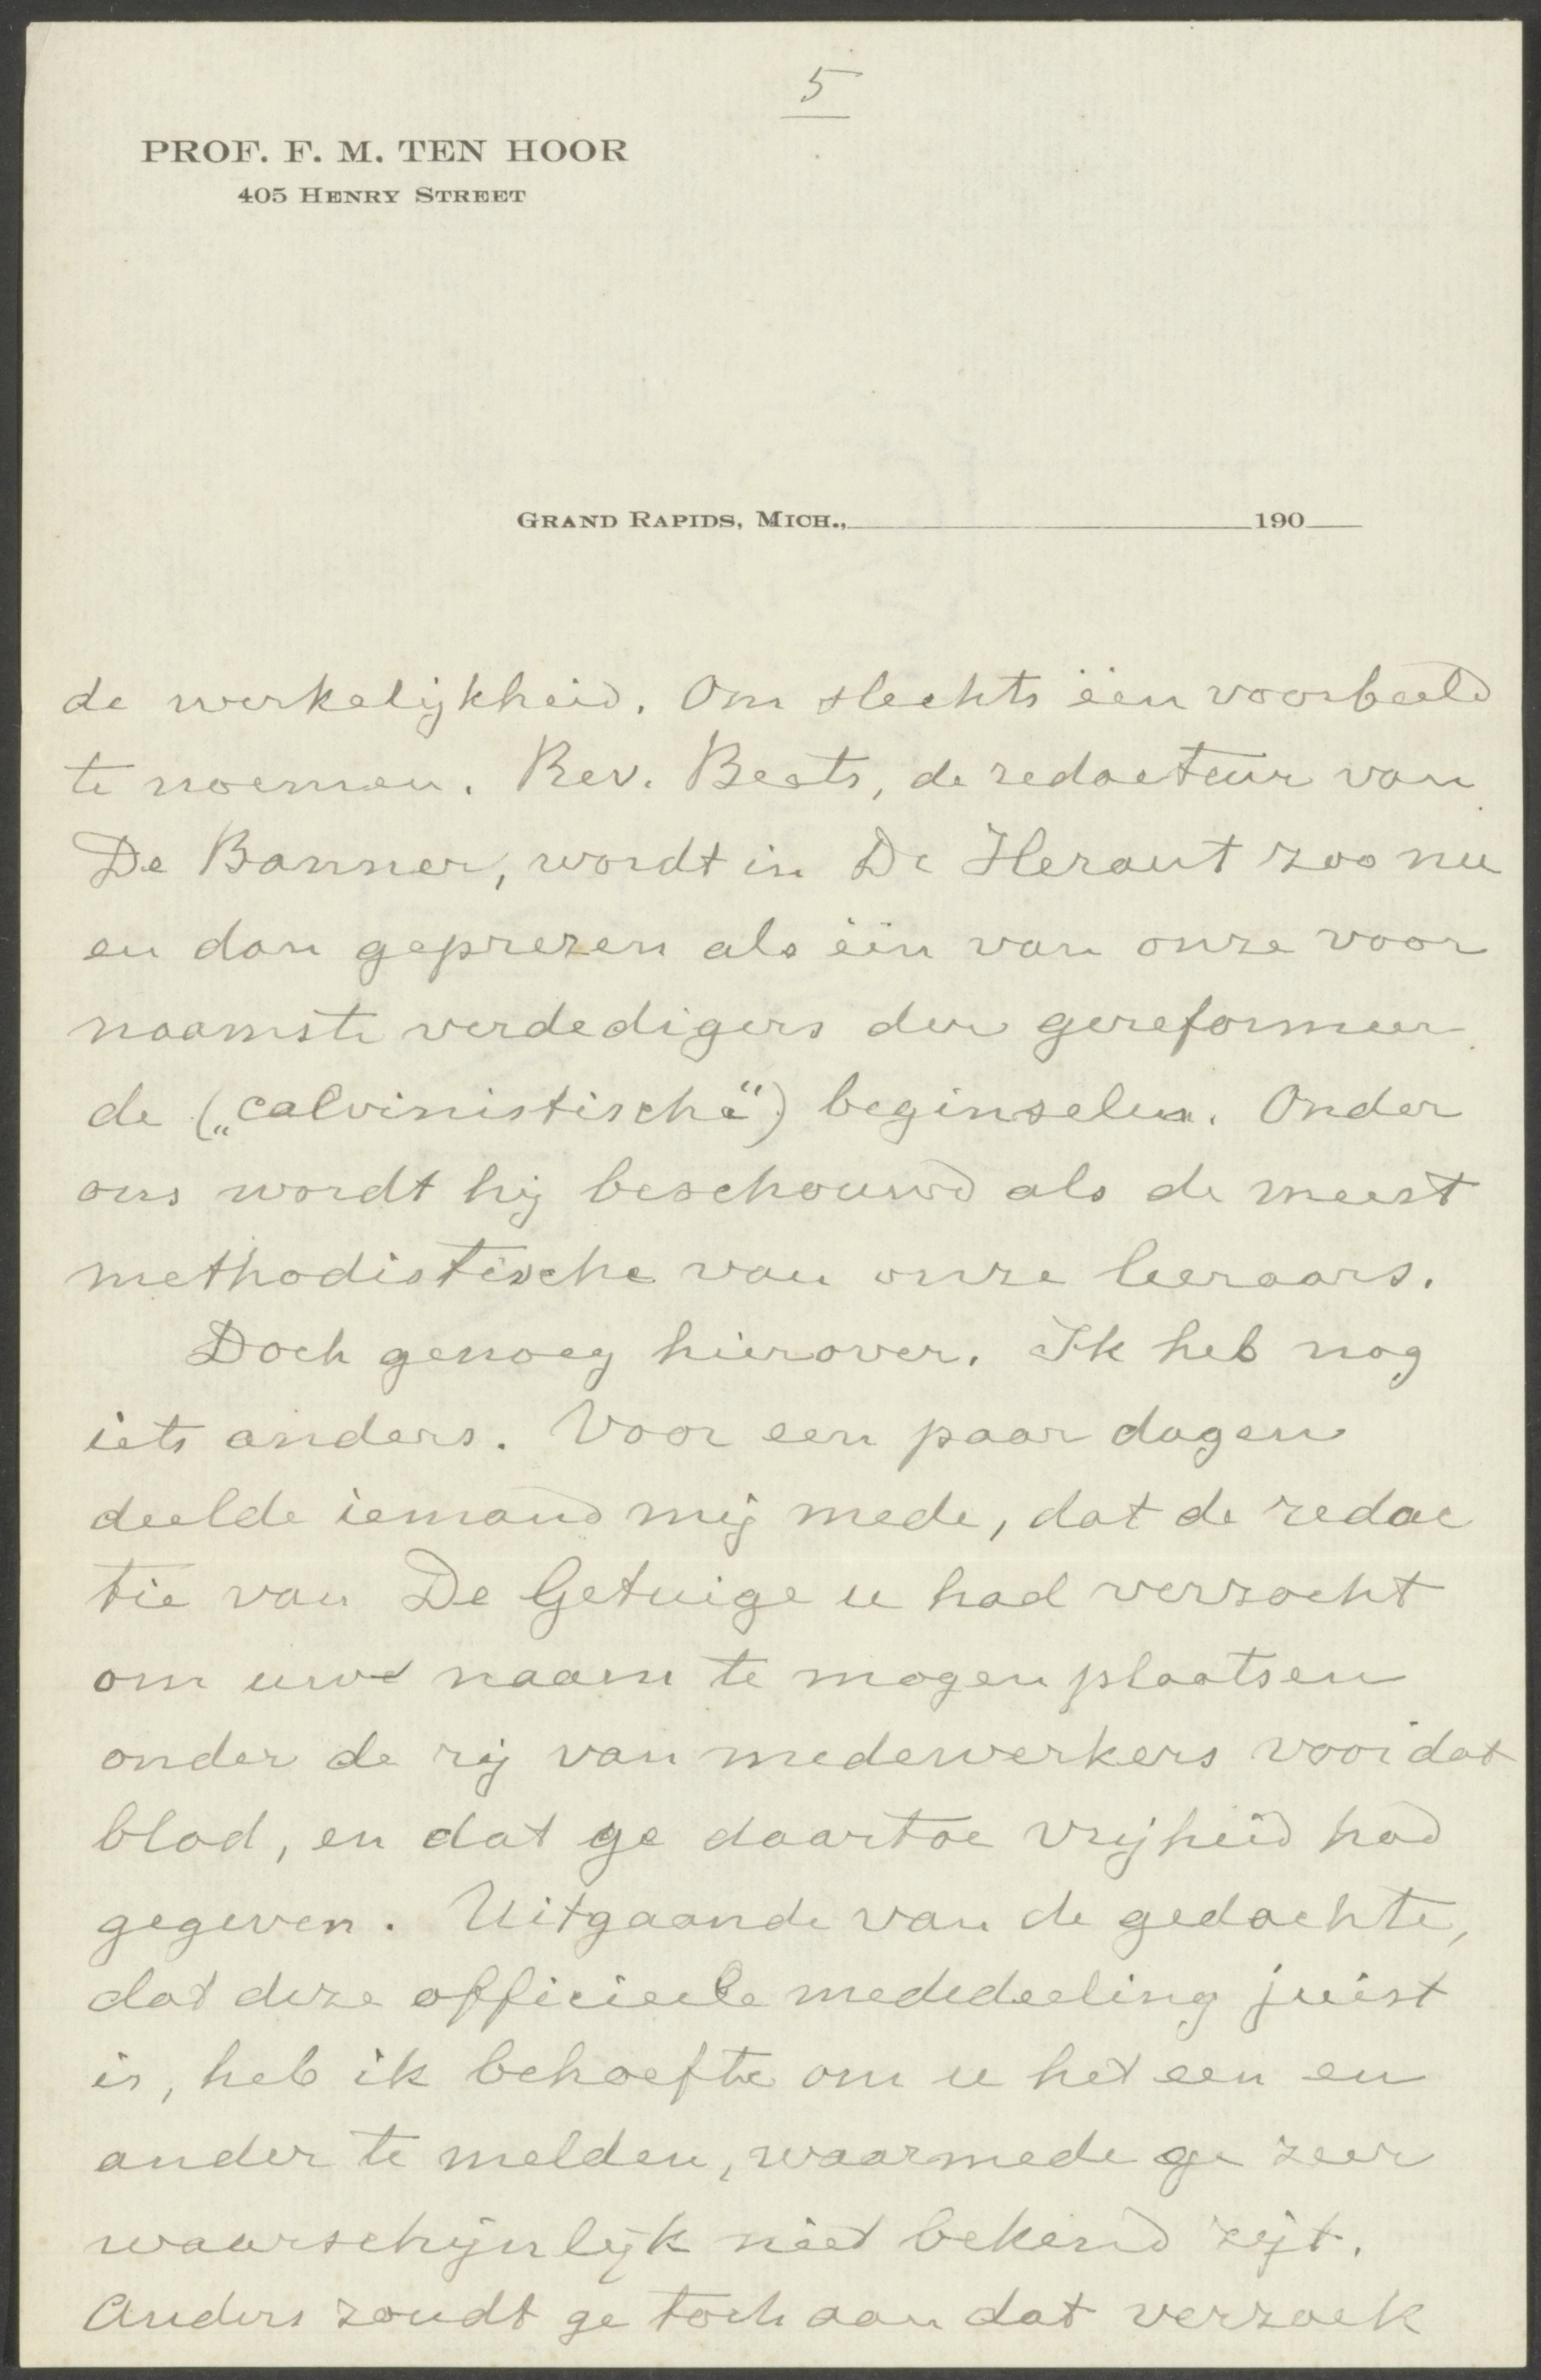 5
PROF. F. M. TEN HOOR
405 HENRY STREET
GRAND RAPIDS, MICH., 190
de werkelijkheid. Om slechts één voorbeeld
te noemen. Rev. Beets, de redacteur van
De Banner, wordt in De Heraut zoo nu
en dan geprezen als één van onze voor
naamste verdedigers der gereformeer
de („calvinistische") beginselen. Onder
ons wordt hij beschouwd als de meest
methodistische van onze leeraars.
Doch genoeg hierover. Ik heb nog
iets anders. Voor een paar dagen
deelde iemand mij mede, dat de redac
tie van De Getuige u had verzocht
om uwe naam te mogen plaatsen
onder de rij van medewerkers voor dat
blad, en dat ge daartoe vrijheid had
gegeven. Uitgaande van de gedachte,
dat deze officieele mededeeling juist
is, heb ik behoefte om u het een en
ander te melden, waarmede ge zeer
waarschijnlijk niet bekend zijt.
Anders zoudt ge toch aan dat verzoek